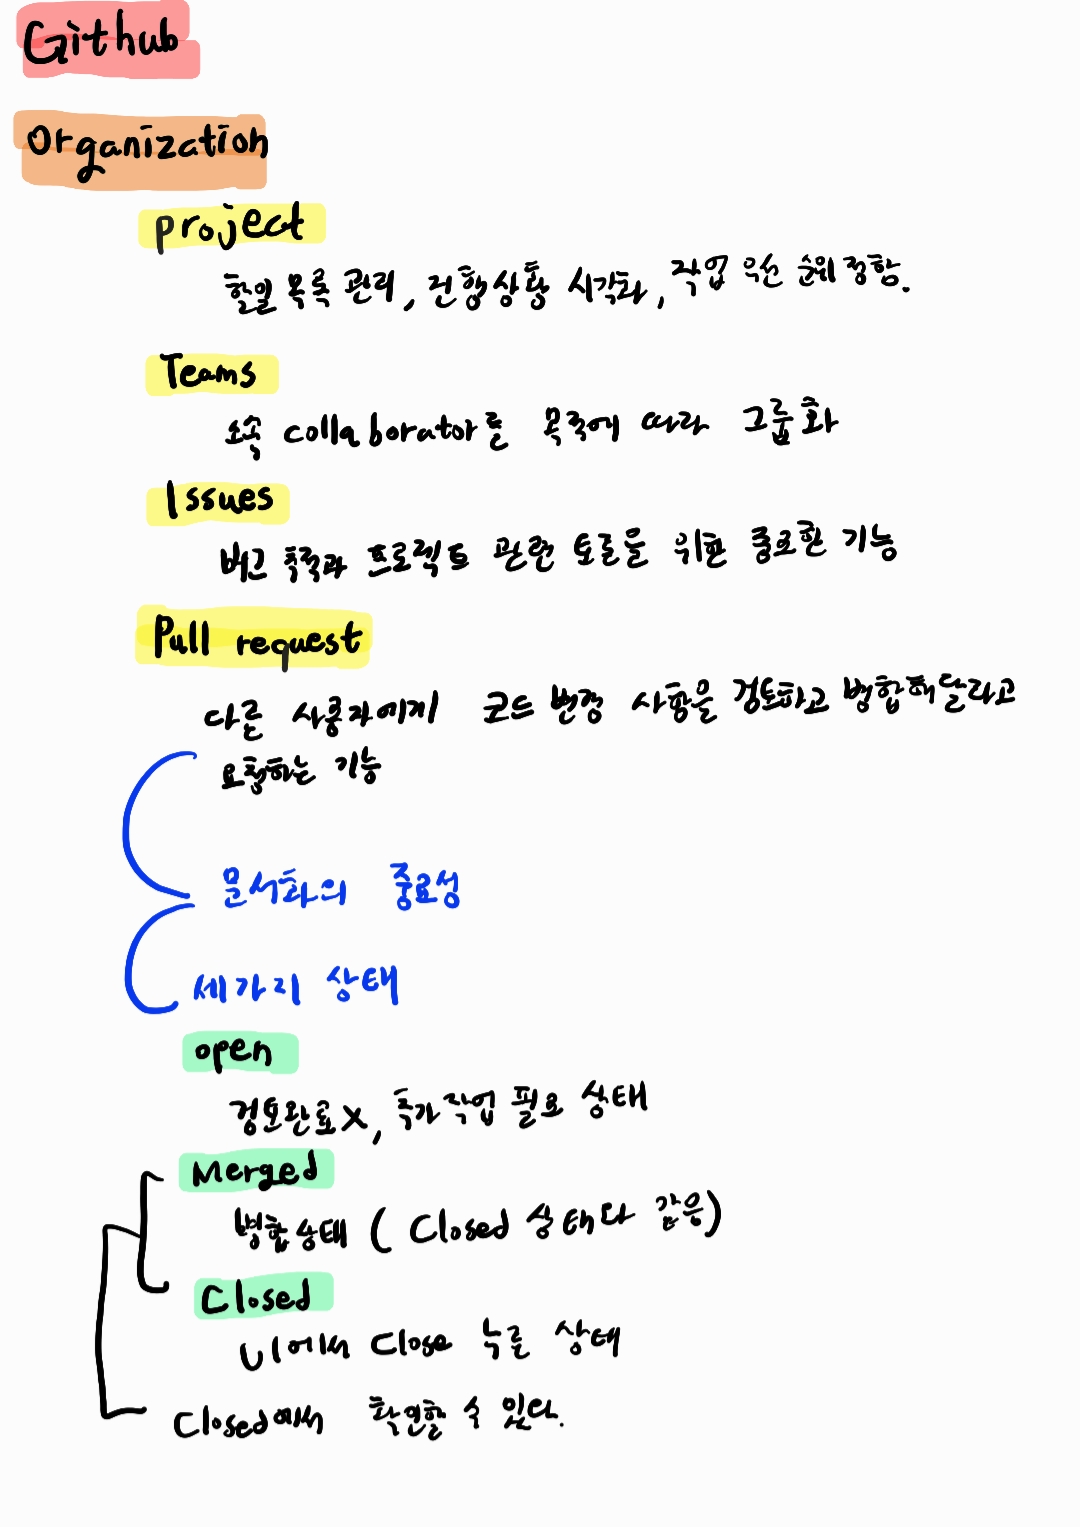 Github
Organization
project
할일 목록 관리, 진행상황 시각화, 작업 우선 순위 정함.
Teams
소속 collaborator를 목적에 따라 그룹화
Issues
버그 추적과 프로젝트 관련 토론을 위한 중요한 기능
Pull request
다른 사용자에게 코드 변경 사항을 검토하고 병합해달라고
요청하는 기능
문서화의 중요성
세가지 상태
open
검토완료X, 추가작업 필요 상태
Merged
병합상태 ( Closed 상태와 같음)
Closed
UI에서 Close 누를 상태
Closed에서 확인할 수 있다.